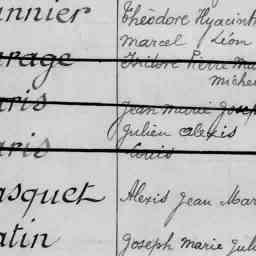 annier Théodore Hyacint
Marcel Léon
arage Isidore Pierre Ma
Miche
aris Jean Marie Josep
Julien Alexis
aris Louis
asquet Alexis Jean Mar
atin Joseph Marie Jul